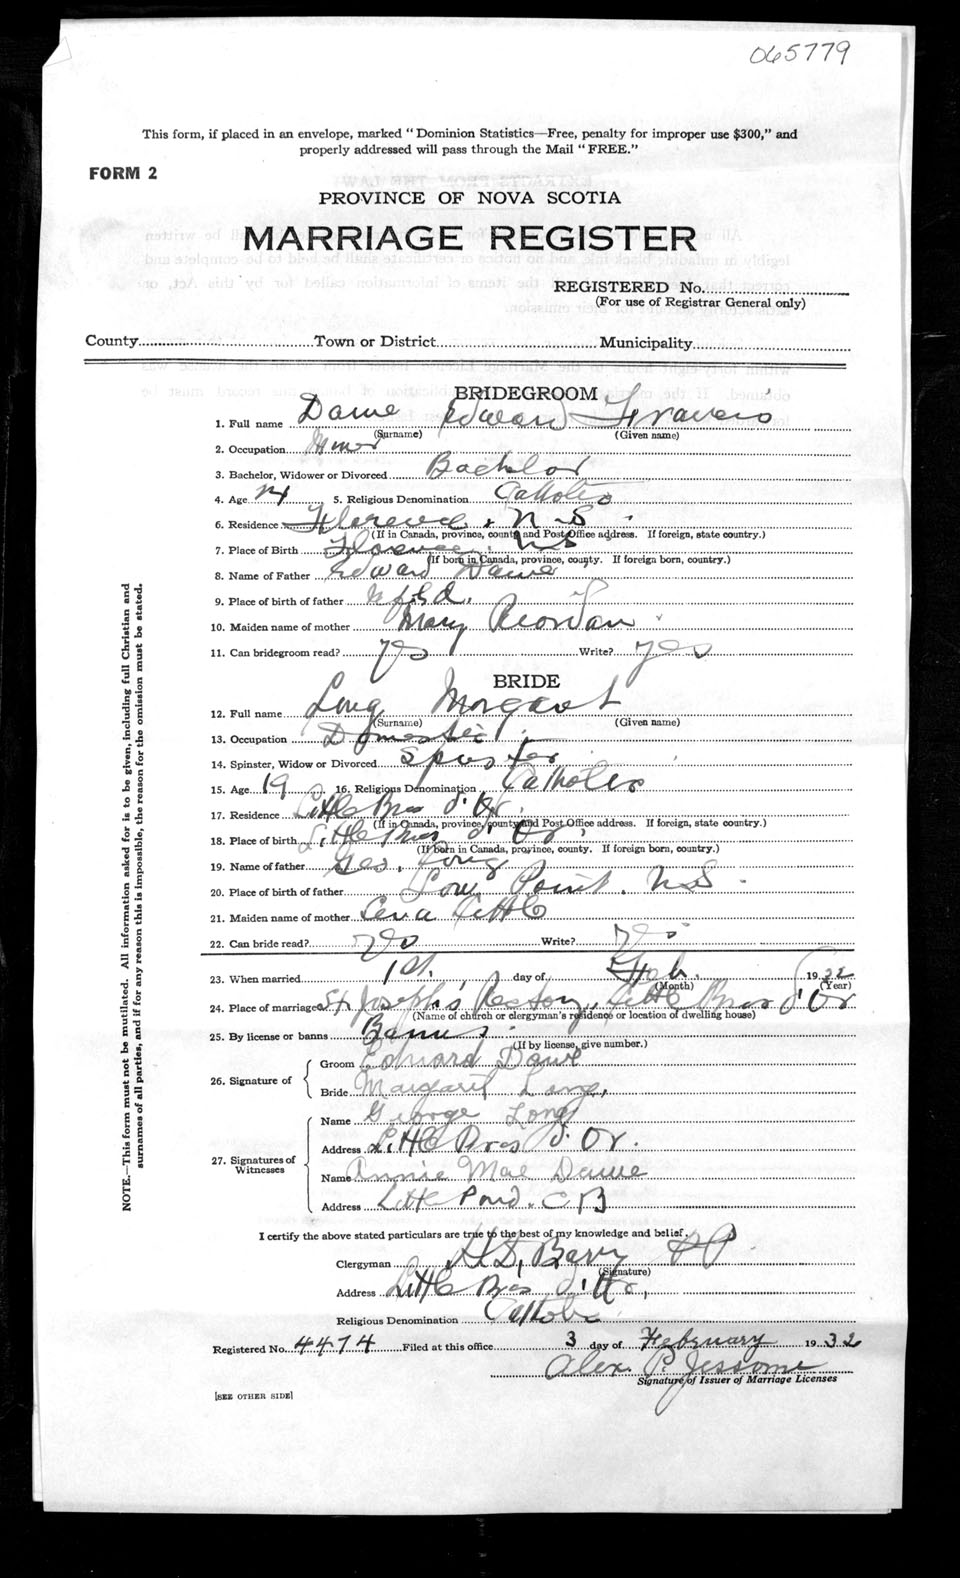 065779
This form, if placed in an envelope, marked "Dominion Statistics—Free, penalty for improper use $300," and
properly addressed will pass through the Mail "FREE."
FORM 2
PROVINCE OF NOVA SCOTIA
MARRIAGE REGISTER
REGISTERED No.
(For use of Registrar General only)
County Town or District Municipality
BRIDEGROOM
1. Full name Dawe Edward Francis
(Surname) (Given name)
2. Occupation Miner
3. Bachelor, Widower or Divorced Bachelor
4. Age 5. Religious Denomination Catholic
6. Residence Florence, N S
(If in Canada, province, county and Post Office address. If foreign, state country.)
7. Place of Birth Florence, N S
(If born in Canada, province, county. If foreign born, country.)
8. Name of Father Edward Dawe
9. Place of birth of father Nfld.
10. Maiden name of mother Mary Reordan
11. Can bridegroom read? yes Write? yes
BRIDE
12. Full name Long Margaret
(Surname) (Given name)
13. Occupation Domestic
14. Spinster, Widow or Divorced Spinster
15. Age 19 16. Religious Denomination Catholic
17. Residence Little Bras d'Or.
(If in Canada, province, county and Post Office address. If foreign, state country.)
18. Place of birth Little Bras d'Or.
(If born in Canada, province, county. If foreign born, country.)
19. Name of father Geo. Long
20. Place of birth of father Low Point. N S
21. Maiden name of mother Lena Little
22. Can bride read? yes Write? yes
23. When married 1st. day of Feb. 1932
(Month) (Year)
24. Place of marriage St. Joseph's Rectory, Little Bras d'Or
(Name of church or clergyman's residence or location of dwelling house)
25. By license or banns Banns
(If by license, give number.)
26. Signature of Groom Edward Dawe
Bride Margaret Long,
27. Signatures of Witnesses
Name George Long
Address Little Bras d'Or.
Name Annie Mae Dawe
Address Little Pond. C B
I certify the above stated particulars are true to the best of my knowledge and belief.
Clergyman Barry P P
(Signature)
Address Little Bras d'Or,
Religious Denomination Catholic
Registered No. 4474 Filed at this office 3 day of February 1932
Alex. P. Jessome
Signature of Issuer of Marriage Licenses
[SEE OTHER SIDE]
NOTE.—This form must not be mutilated. All information asked for is to be given, including full Christian and
surnames of all parties, and if for any reason this is impossible, the reason for the omission must be stated.